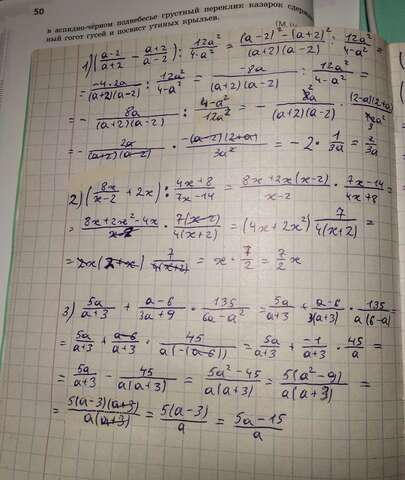 50
в аспидно-чёрном поднебесье грустный переклик казарок
ный гогот гусей и посвист утиных крыльев.
1) (a-2/a+2 - a+2/a-2) : 12a²/4-a² = (a-2)²-(a+2)²/(a+2)(a-2) : 12a²/4-a² =
= -4·2a/(a+2)(a-2) : 12a²/4-a² = -8a/(a+2)(a-2) : 12a²/4-a² =
= - 8a/(a+2)(a-2) : 4-a²/12a² = - 8a/(a+2)(a-2) · (2-a)(2+a)/12a² =
= - 2a/(a+2)(a-2) · -(a-2)(2+a)/3a² = -2 · 1/3a = 2/3a
2) (8x/x-2 + 2x) : 4x+8/7x-14 = 8x+2x(x-2)/x-2 · 7x-14/4x+8 =
= 8x+2x²-4x/x-2 · 7(x-2)/4(x+2) = (4x+2x²) 7/4(x+2) =
= 2x(2+x) 7/4(x+2) = x · 7/2 = 7/2 x
3) 5a/a+3 + a-6/3a+9 · 135/6a-a² = 5a/a+3 + a-6/3(a+3) · 135/a(6-a) =
= 5a/a+3 + a-6/a+3 · 45/a(-(a-6)) = 5a/a+3 + -1/a+3 · 45/a =
= 5a/a+3 - 45/a(a+3) = 5a²-45/a(a+3) = 5(a²-9)/a(a+3) =
= 5(a-3)(a+3)/a(a+3) = 5(a-3)/a = 5a-15/a